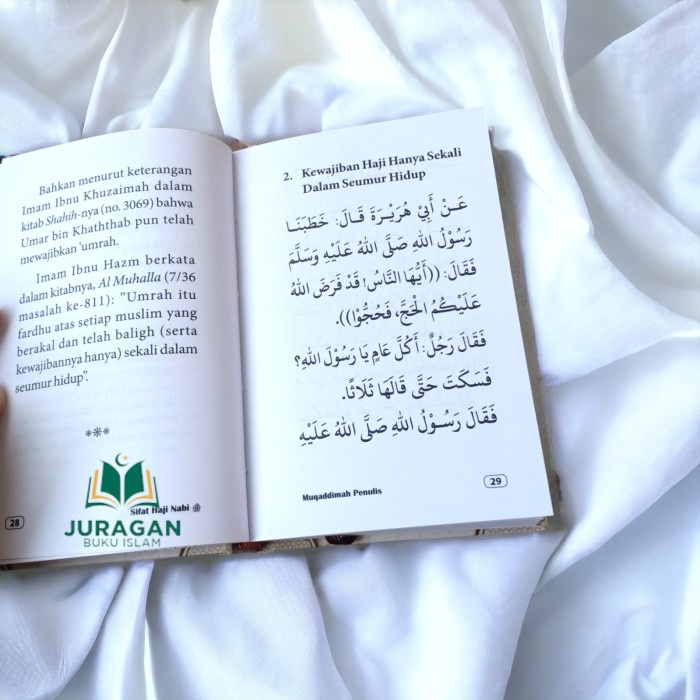 Bahkan menurut keterangan
Imam Ibnu Khuzaimah dalam
kitab Shahih-nya (no. 3069) bahwa
Umar bin Khaththab pun telah
mewajibkan 'umrah.
Imam Ibnu Hazm berkata
dalam kitabnya, Al Muhalla (7/36
masalah ke-811): "Umrah itu
fardhu atas setiap muslim yang
berakal dan telah baligh (serta
kewajibannya hanya) sekali dalam
seumur hidup".
***
Sifat Haji Nabi ﷺ
28
JURAGAN
BUKU ISLAM
2. Kewajiban Haji Hanya Sekali
Dalam Seumur Hidup
عَـنْ أَبِيْ هُرَيْـرَةَ قَـالَ: خَطَبَنَـا
رَسُوْلُ اللهِ صَلَّى اللهُ عَلَيْهِ وَسَلَّمَ
فَقَالَ: ((أَيُّهَا النَّاسُ! قَدْ فَرَضَ اللهُ
عَلَيْكُمُ الْحَجَّ، فَحُجُّوْا)).
فَقَالَ رَجُلٌ: أَكُلَّ عَامٍ يَا رَسُوْلَ اللهِ؟
فَسَكَتَ حَتَّى قَالَهَا ثَلَاثًا.
فَقَالَ رَسُـوْلُ اللهِ صَلَّى اللهُ عَلَيْهِ
Muqaddimah Penulis
29